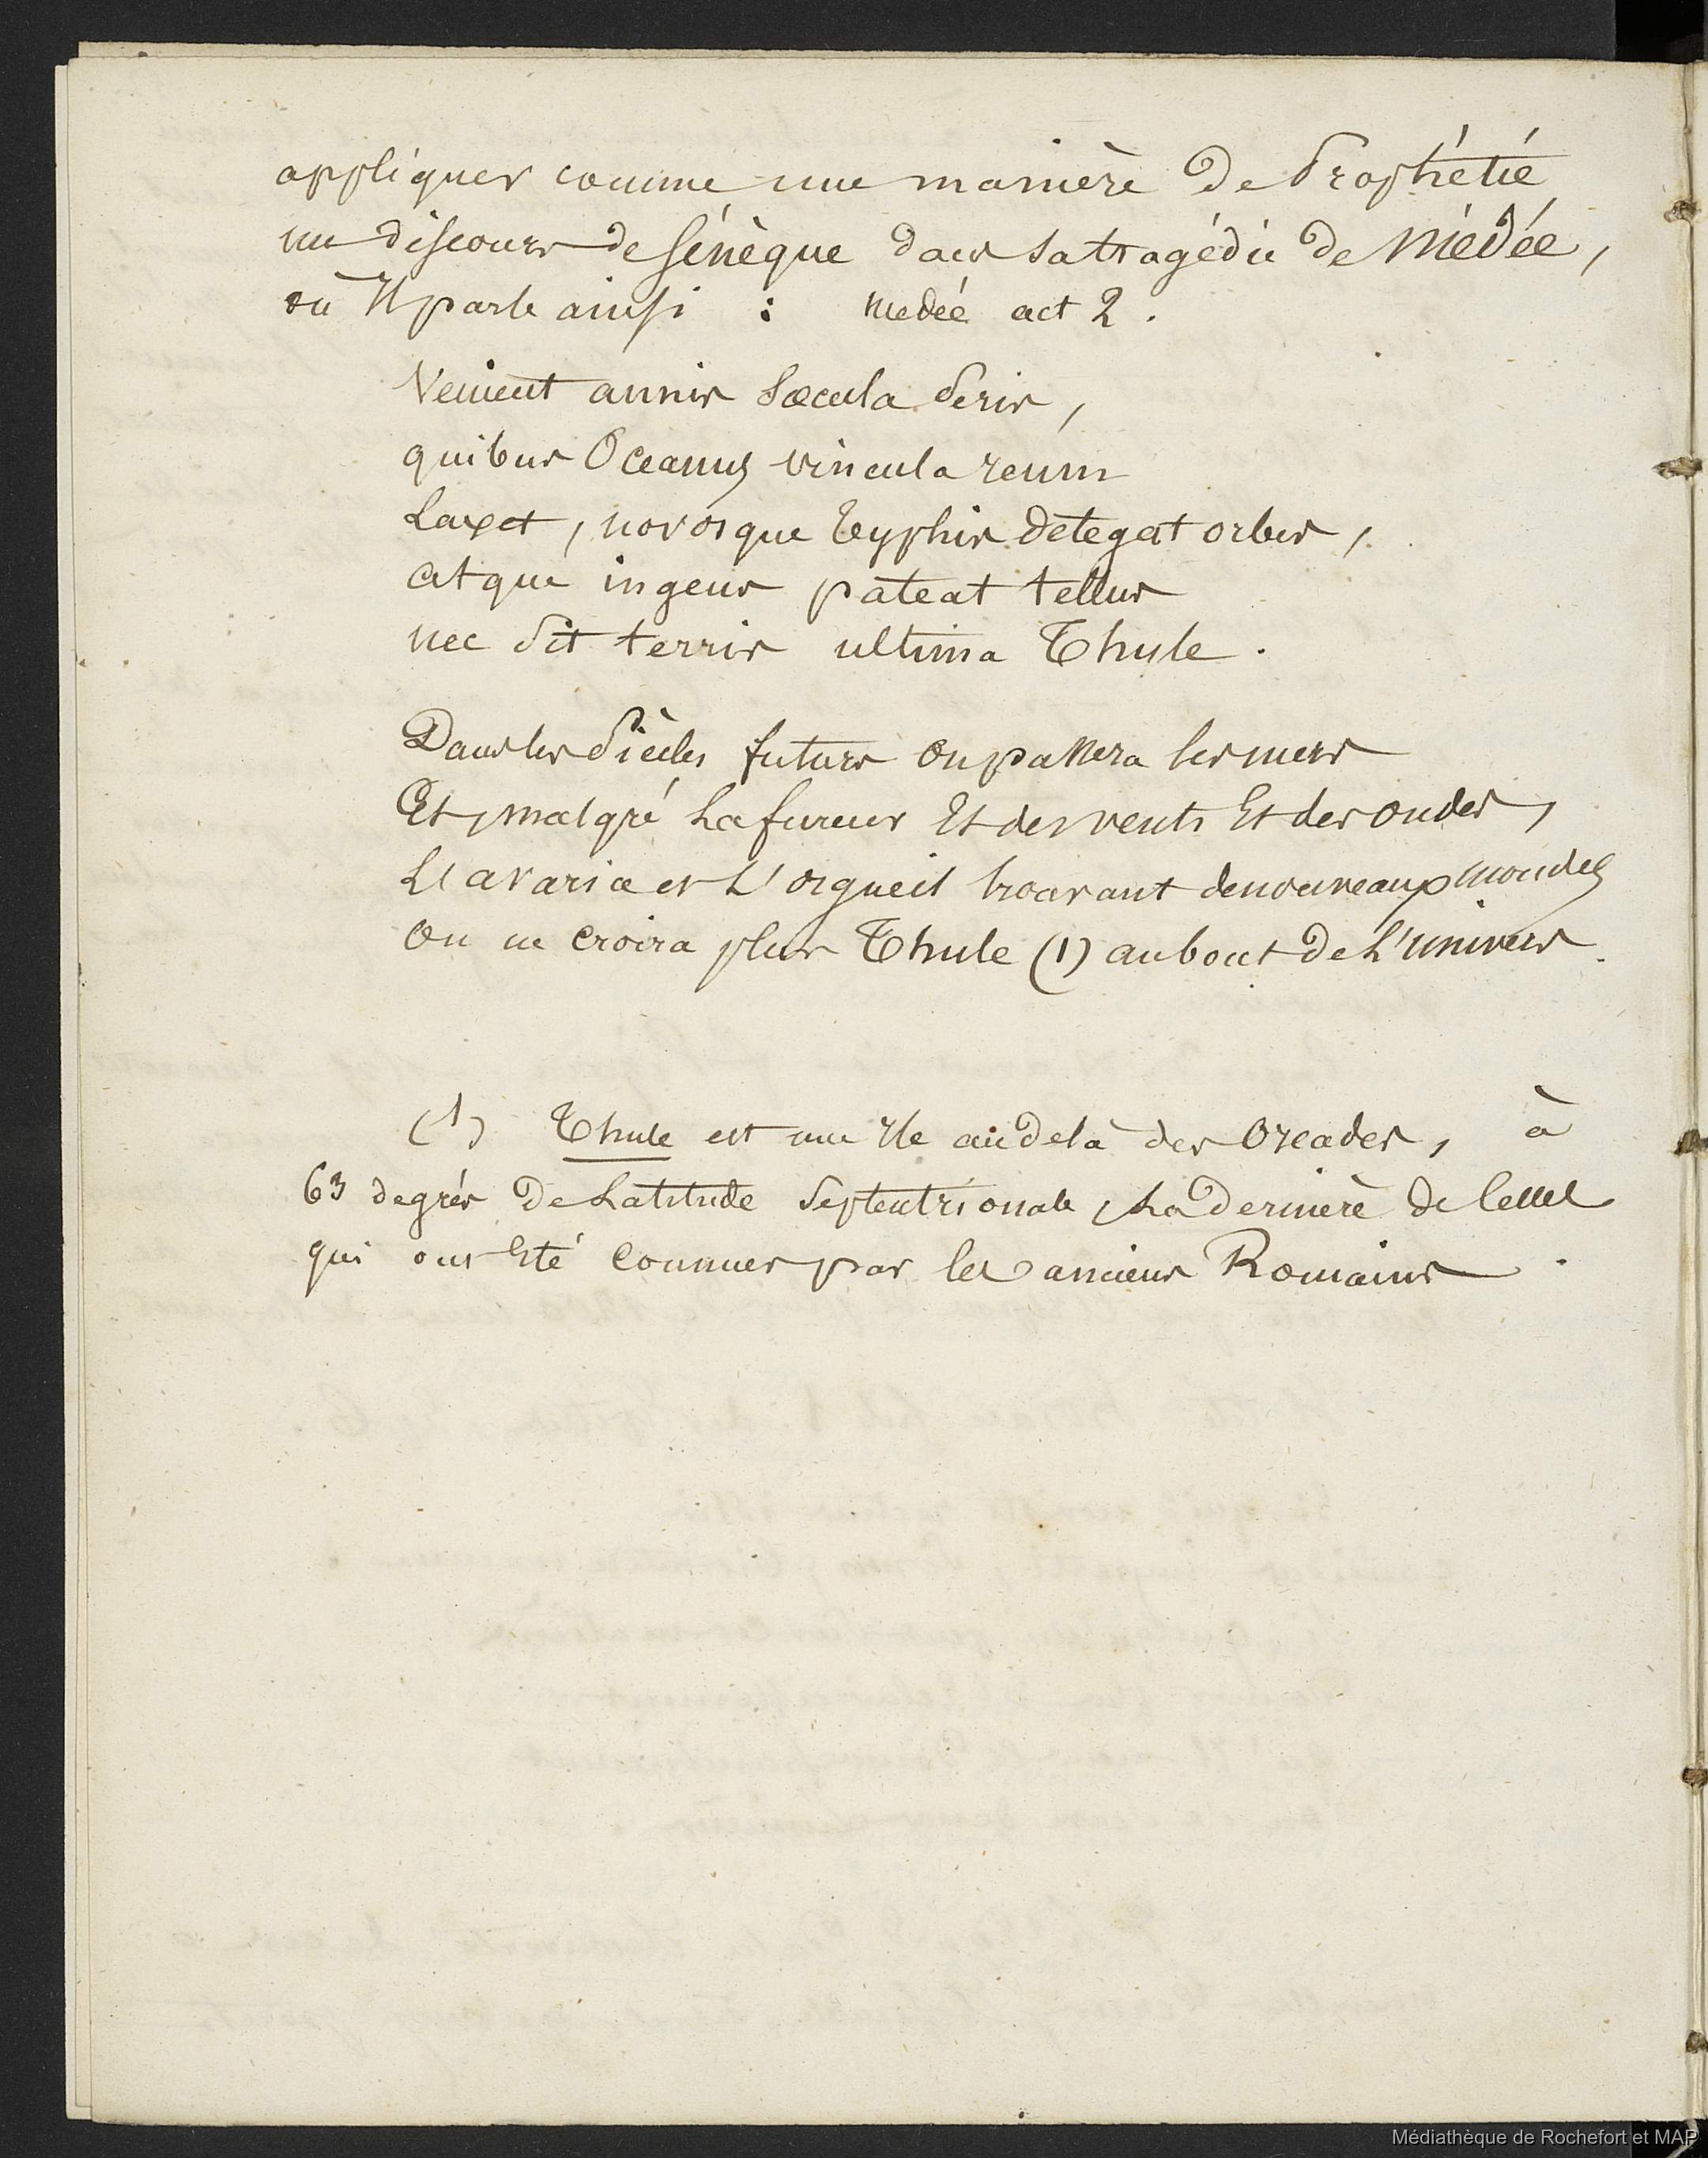 appliquer comme une manière de Prophétie
un discours de Sénèque dans sa tragédie de Médée,
où Il parle ainsi : Medée act 2.
Venient annis sæcula seris,
quibus Oceanus vincula rerum
Laxet, novosque Typhis detegat orbes,
atque ingens pateat tellus
nec sit terris ultima Thule.
Dans les siècles futurs on passera les mers
Et, malgré La fureur Et des vents Et des ondes,
L'avarice et L'orgueil trouvant de nouveaux mondes
On ne croira plus Thule (1) au bout de L'univers.
(1) Thule est une Ile au delà des Orcades, à
63 degrés de Latitude Septentrionale, La dernière de Celles
qui ont Eté Connues par les anciens Romains.
Médiathèque de Rochefort et MAP